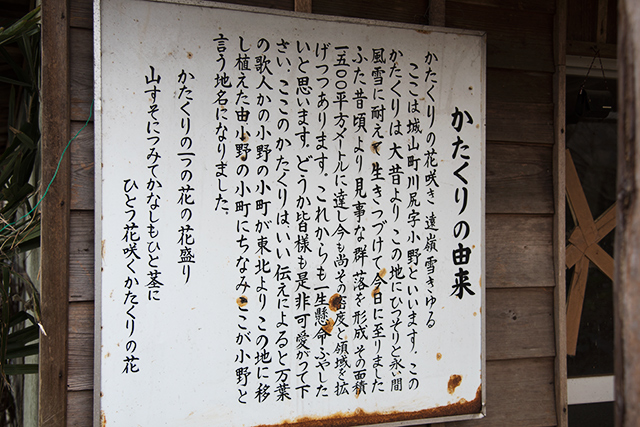 かたくりの由来
かたくりの花咲き 遠嶺雪きゆる
ここは城山町川尻字小野といいます。この
かたくりは大昔より この地にひっそりと永い間
風雪に耐えて 生きつづけて今日に至りました
ふた昔頃より 見事な群落を形成 その面積
一五〇〇平方メートルに達し今も尚その密度と領域を拡
げつつあります。これからも一生懸命ふやした
いと思います。どうか皆様も是非可愛がって下
さい。ここのかたくりは、いい伝えによると万葉
の歌人かの小野の小町が東北より この地に移
し植えた由小野の小町にちなみ ここが小野と
言う地名になりました。
かたくりの一つの花の花盛り
山すそにつみてかなしもひと茎に
ひとつ花咲くかたくりの花